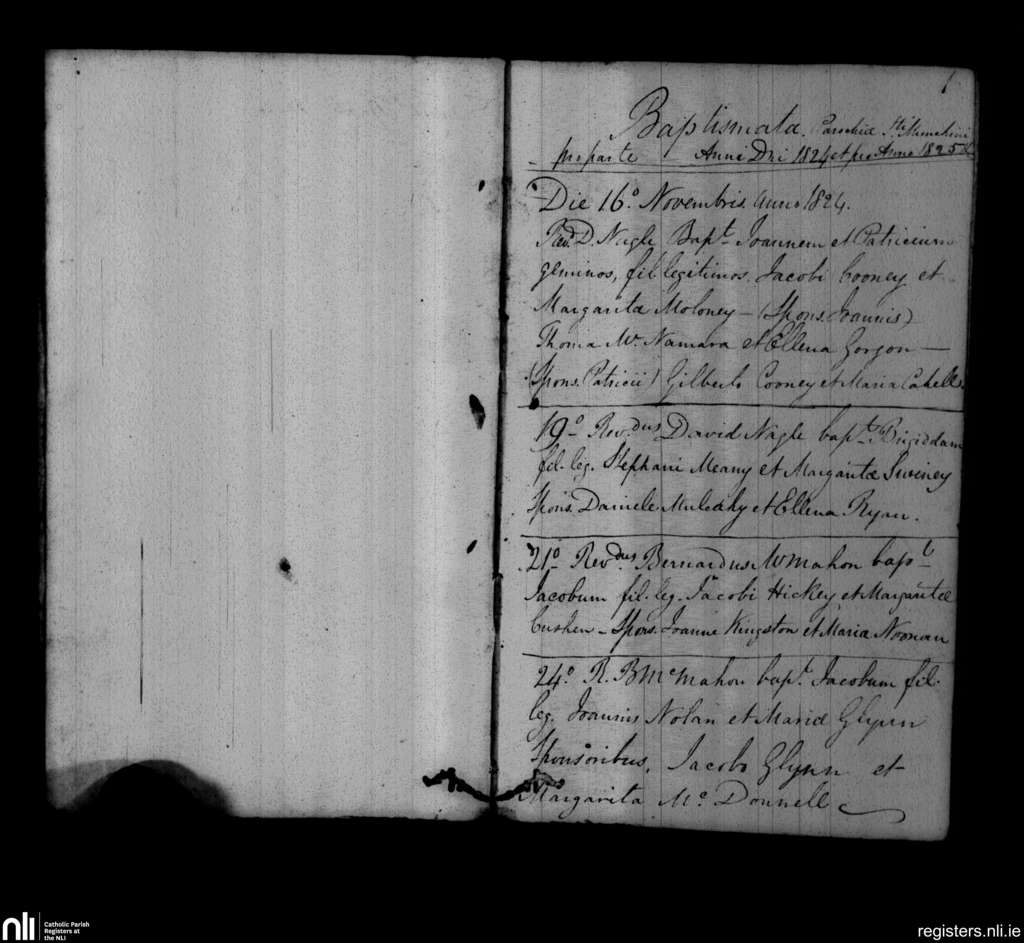 1
Baptismata. Parochiæ Sti. Munchini
pro parte Anni Dni 1824 et pro Anno 1825
Die 16o. Novembris Anno 1824.
Revd. D. Nagle Bapt. Joannem et Patricium
geminos, fil legitimos. Jacobi Cooney et
Margaritæ Moloney - (Spons. Joannis)
Thoma Mc. Namara et Ellena Gorgon -
(Spons. Patricii) Gilberto Cooney et Maria Cahell
19o Revdus David Nagle bapt. Brigiddam
fil. leg. Stephani Meany et Margaritæ Swiney
Spons. Daniele Mulcahy et Ellena Ryan.
21o. Revdus. Bernardus McMahon bapt.
Jacobum fil. leg. Jacobi Hickey et Margaritæ
Cushen - Spons. Joanne Kingston et Maria Noonan
24o. R. B McMahon bapt. Jacobum fil.
leg. Joannis Nolan et Mariæ Glynn
Sponsoribus, Jacobo Glynn et
Margarita Mc. Donnell
nli
Catholic Parish
Registers at
the NLI
registers.nli.ie